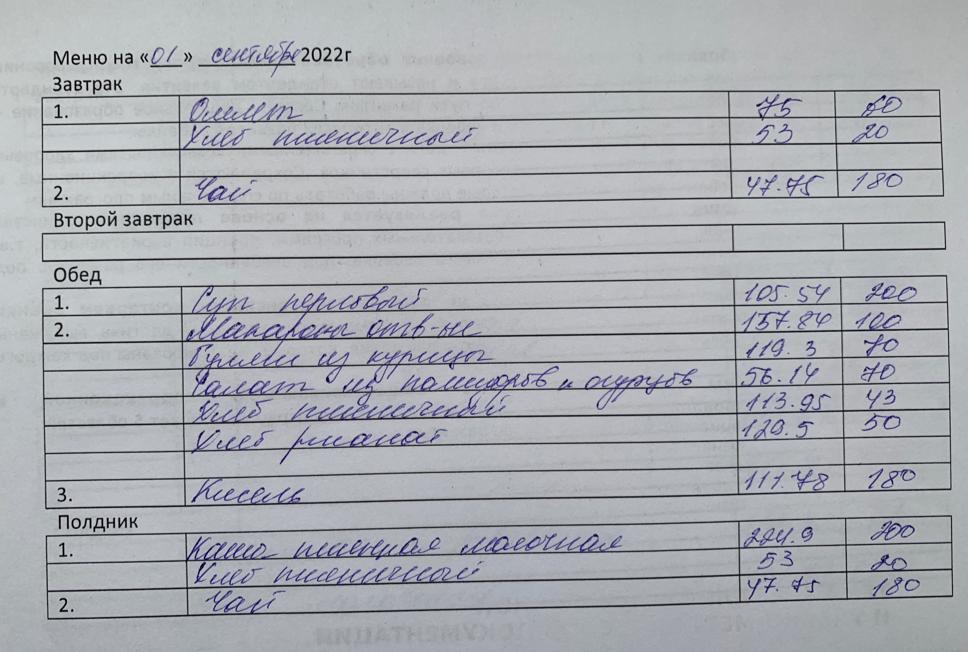 Меню на «01» сентябре 2022г
Завтрак
1. Омлет 75 60
Хлеб пшеничный 53 20
2. Чай 47.75 180
Второй завтрак
Обед
1. Суп перловый 105.54 200
2. Макароны отв-ые 157.84 100
Гуляш из курицы 119.3 70
Салат из помидоров и огурцов 56.14 70
Хлеб пшеничный 113.95 43
Хлеб ржаной 129.5 50
3. Кисель 111.78 180
Полдник
1. Каша пшенная молочная 224.9 200
Хлеб пшеничный 53 20
2. Чай 47.75 180